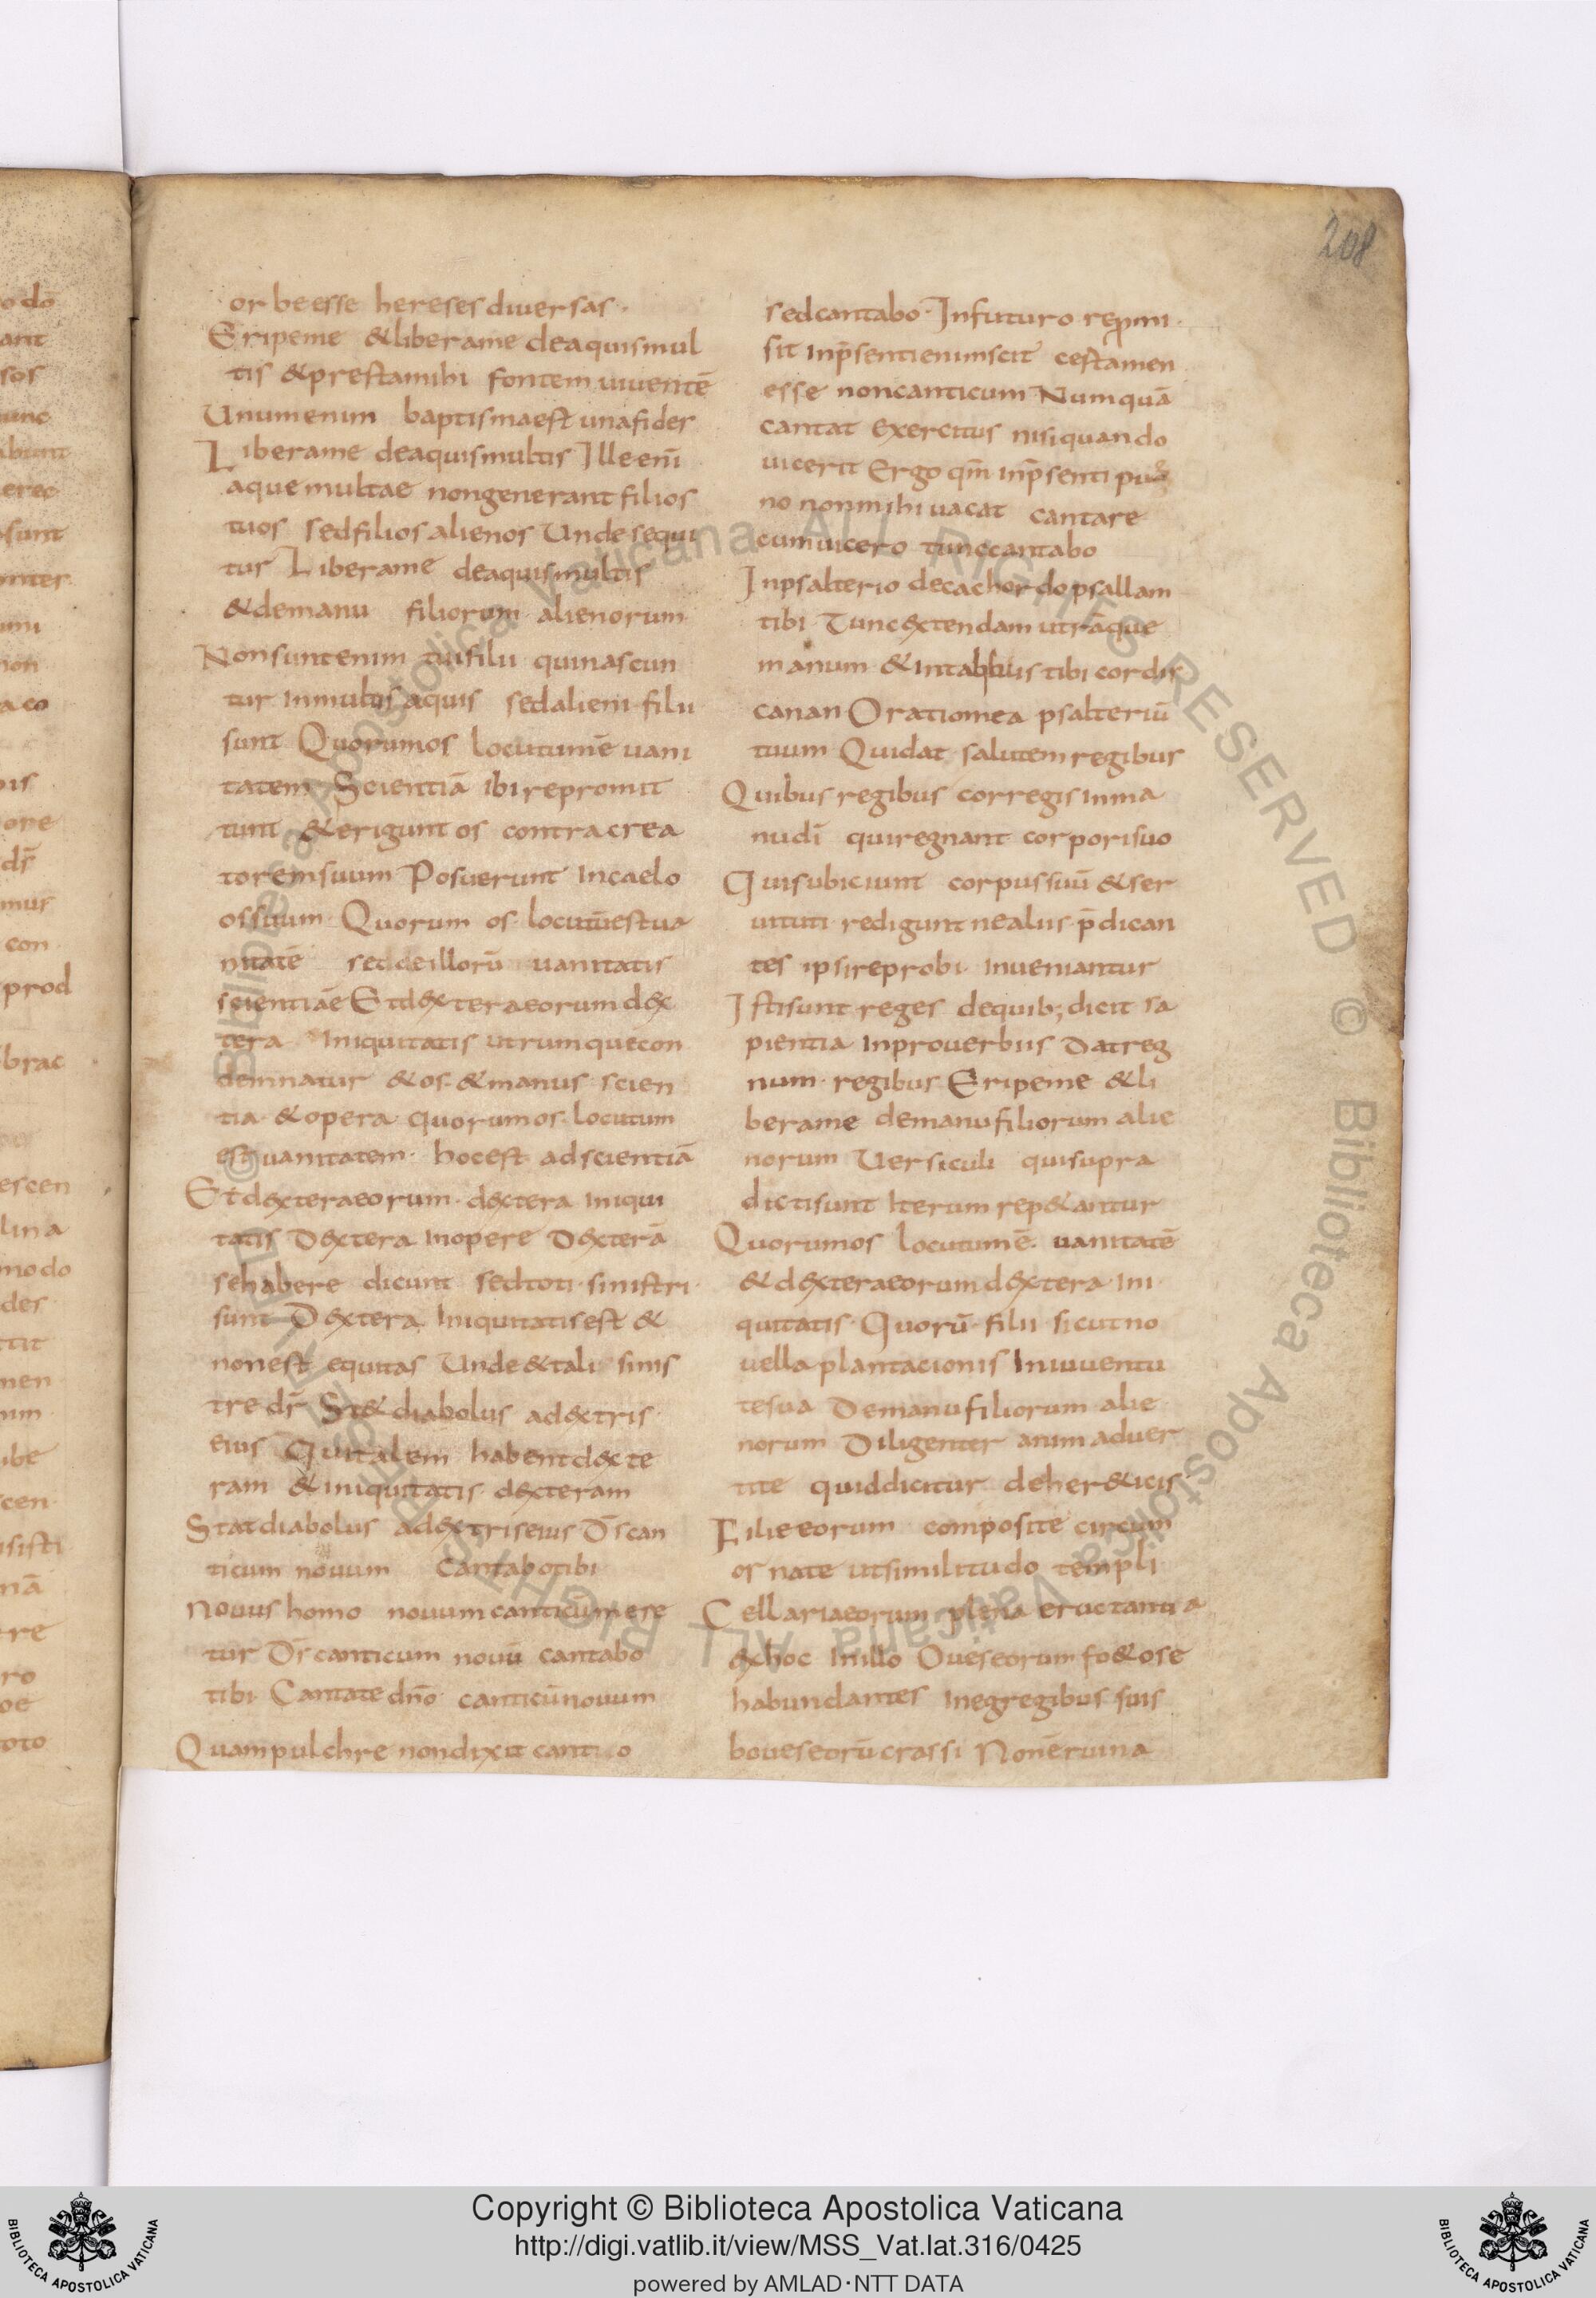 208
or be esse hereses diuersas·
Eripeme &liberame deaquismul
tis &prestamihi fontem uiuentē
Unumenim baptismaest unafides
Liberame deaquismultis Illeenī
aquemultae nongenerant filios
tuos sedfilios alienos Unde sequi
tur Liberame deaquismultis
&demanu filiorum alienorum
Nonsuntenim tuifilii quinascun
tur inmultisaquis sedalieni filii
sunt Quorumos locutumē uani
tatem Scientiā ibi repromit
tunt &erigunt os contra crea
toremsuum Posuerunt incaelo
ossuum Quorum os locutūestua
nitatē sed deillorū uanitatis
scientiāe Etd&xteraeorum d&x
tera iniquitatis utrumquecon
demnatur &os &manus scien
tia &opera quorumos locutum
est uanitatem· hocest adscientiā
Etd&xteraeorum· d&xtera iniqui
tatis D&xtera inopere D&xterā
sehabere dicunt sedtoti sinistri·
sunt D&xtera iniquitatisest &
nonest equitas Unde&tali sinis
tre dr̄ St& diabolus ad&xtris
eius Quitalem habentd&xte
ram &iniquitatis d&xteram
Statdiabolus ad&xtriseius Ds̄ can
ticum nouum Cantabotibi
Nouus homo nouumcanticūmere
tur Ds̄ canticum nouū cantabo
tibi Cantate dn̄o canticūnouum
Quampulchre nondixit canto
sedcantabo· Infuturo repmi
sit inp̄sentienimscit certamen
esse noncanticum Numquā
cantat exercitus nisiquando
uicerit Ergo qm̄ inp̄senti pug
no nonmihi uacat cantare
cumuicero tunccantabo
Inpsalterio decachordo psallam
tibi· Tunc &xtendam utrāque
manum &intabbuis tibi cordis
canan Oratiomea psalteriū
tuum Quidat salutem regibus
Quibus regibus corregis inma
nudī quiregnant corporisuo
Quisubiciunt corpussuū &ser
uituti redigunt nealiis p̄dican
tes ipsireprobi inueniantur
Istisunt reges dequib; dicit sa
pientia inprouerbiis Datreg
num· regibus Eripeme &li
berame demanufiliorum alie
norum Uersiculi quisupra
dictisunt Iterum rep&antur
Quorumos locutumē· uanitatē
&d&xteraeorumd&xtera ini
quitatis· Quorū filii sicut no
uella plantacionis Iniuuentu
tesua Demanufiliorum alie
norum Diligenter animaduer
tite quiddicitur deher&icis·
Filieeorum composite circum
ornate utsimilitudo templi
Cellariaeorum plena eructantia
&xhoc inillo Oueseorum fo&ose
habundantes Inegregibus suis
boueseorūcrassi Nonēruina
odo
ant
sos
unc
abunt
erec
sunt
non
aco
ore
dr̄
mus
con
prod
brac
escen
lina
modo
des
nen
ibe
cen
sisti
nā
re
ro
oto
Copyright © Biblioteca Apostolica Vaticana
http://digi.vatlib.it/view/MSS_Vat.lat.316/0425
powered by AMLAD·NTT DATA
BIBLIOTECA APOSTOLICA VATICANA
BIBLIOTECA APOSTOLICA VATICANA
© Biblioteca Apostolica Vaticana ALL RIGHTS RESERVED © Biblioteca Apostolica Vaticana ALL RIGHTS RESERVED